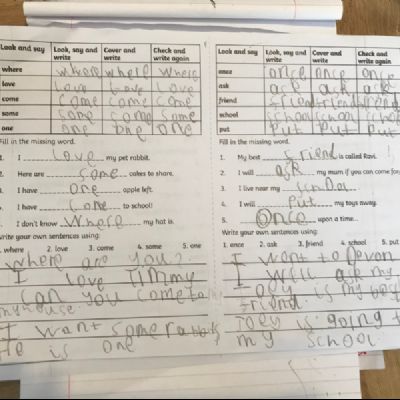 Look and say Look, say and write Cover and write Check and write again
where where where where
love love love love
come come come come
some some some some
one one one one
Fill in the missing word.
1. I love my pet rabbit.
2. Here are some cakes to share.
3. I have one apple left.
4. I have come to school!
5. I don't know where my hat is.
Write your own sentences using:
1. where 2. love 3. come 4. some 5. one
where are you?
I love Timmy
can you come to
my house
I want some rabbits
He is one
Look and say Look, say and write Cover and write Check and write again
once once once once
ask ask ask ask
friend friend friend friend
school school school school
put put put put
Fill in the missing word.
1. My best friend is called Ravi.
2. I will ask my mum if you can come
3. I live near my school
4. I will put my toys away.
5. Once upon a time...
Write your own sentences using:
1. once 2. ask 3. friend 4. school 5. put
I went to Devon
I will ask my
Joey is my best
friend.
Joey is going t
my school.